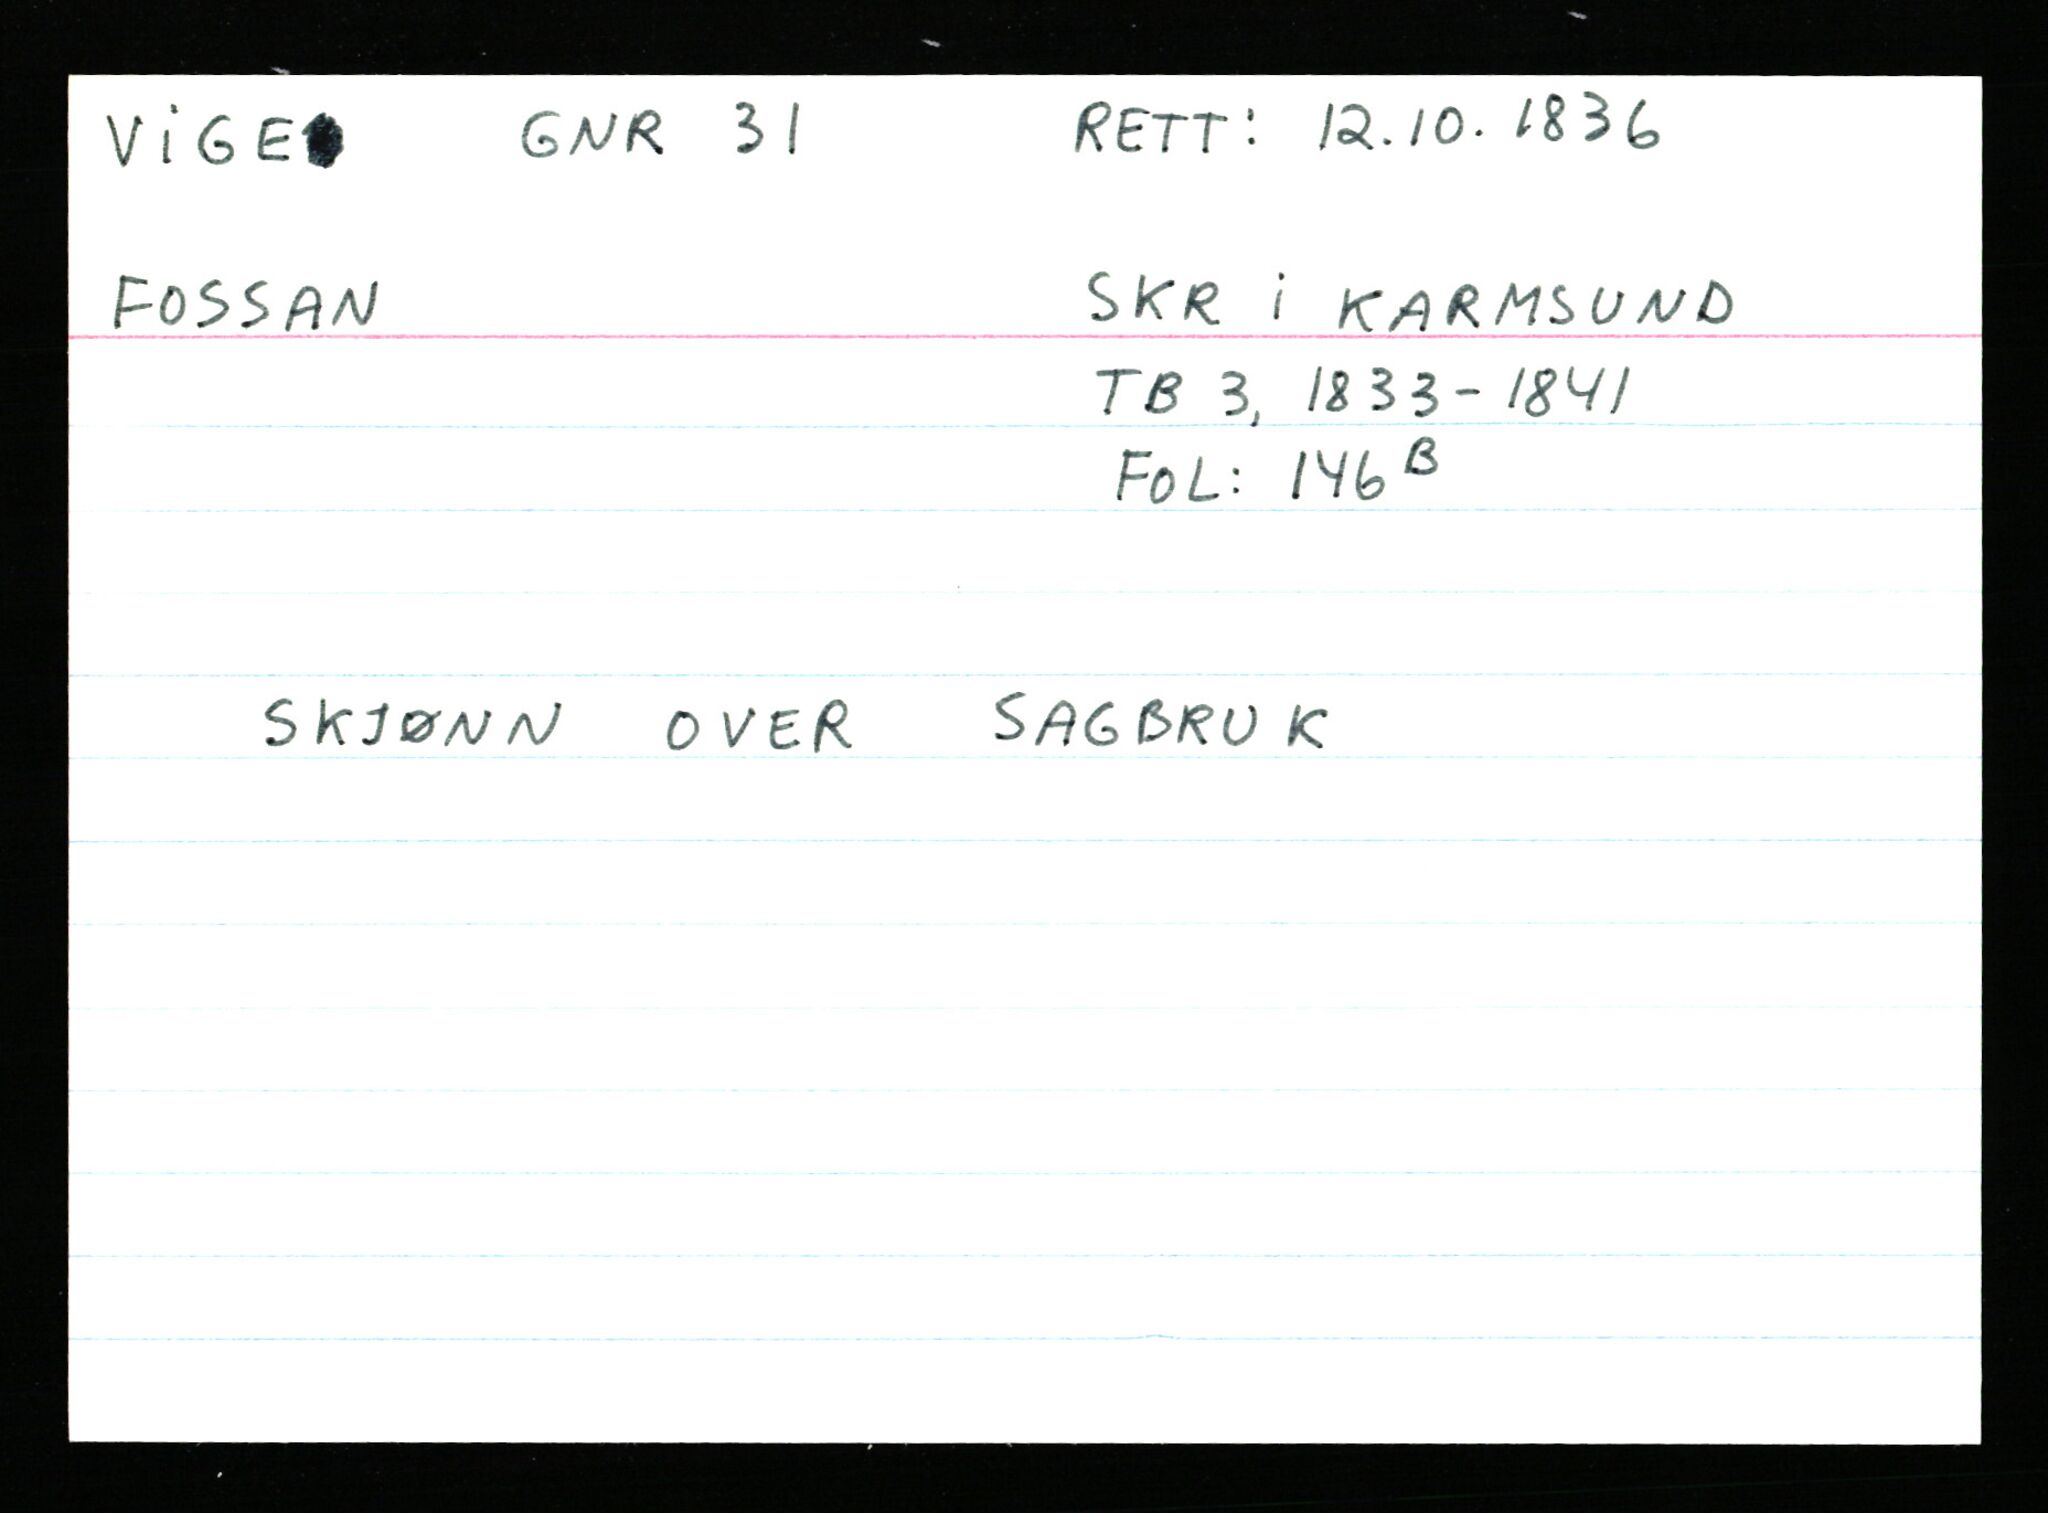 VIGE GNR 31 RETT: 12.10.1836
FOSSAN SKR i KARMSUND
TB 3, 1833-1841
FOL: 146B
SKJØNN OVER SAGBRUK